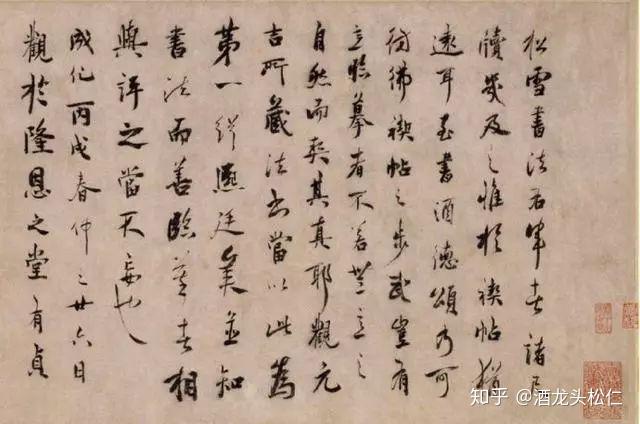 松雪書法右軍者諸尺
牘幾及之惟於禊帖猶
遠耳至書酒德頌乃可
彷彿禊帖之步武豈有
意臨摹者不若無意之
自然而契其真耶觀元
吉所藏法書當以此為
第一熙廷美並知
書法而善臨者相
與評之當不妄也
成化丙戌春仲之廿六日
觀於隆恩之堂有貞
知乎 @酒龙头松仁